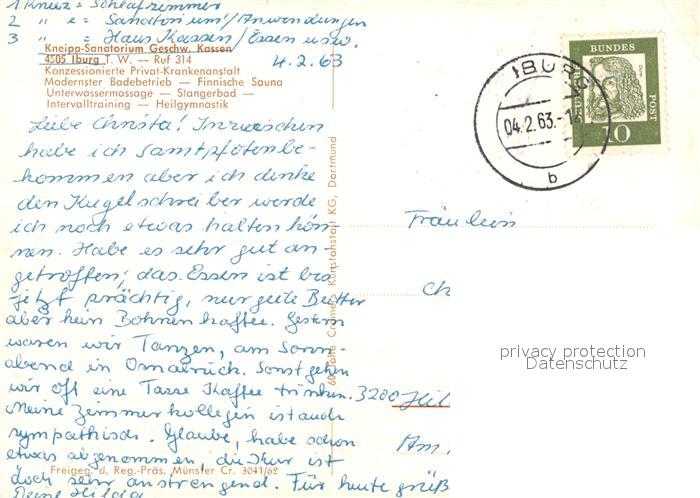 1 Kreuz = Schlafzimmer
2 " = Sanatorium / Anwendungen
3 " = Haus Kassen / Essen usw.
4.2.63
Kneipp-Sanatorium Geschw. Kassen
4505 Iburg T. W. — Ruf 314
Konzessionierte Privat-Krankenanstalt
Modernster Badebetrieb — Finnische Sauna
Unterwassermassage — Stangerbad —
Intervalltraining — Heilgymnastik
Liebe Christa! Inzwischen
habe ich Samtpfötenbe-
kommen aber ich denke
den Kugelschreiber werde
ich noch etwas halten kön-
nen. Habe es sehr gut an-
getroffen, das Essen ist bis
jetzt prächtig, nur gute Butter
aber kein Bohnenkaffee. Gestern
waren wir Tanzen, am Sonn-
abend in Osnabrück. Sonst gehen
wir oft eine Tasse Kaffee trinken.
Meine Zimmerkollegin ist auch
sympathisch. Glaube, habe schon
etwas abgenommen, die Kur ist
doch sehr anstrengend. Für heute grüß
Deine Hilda
Freigeg. d. Reg.-Präs. Münster Cr. 3041/62
60 Jahre Cramers Kunstanstalt KG, Dortmund
IBURG
04.2.63.-1
b
DEUTSCHE
BUNDES
POST
10
Fräulein
Ch
3200 Hil
Am
privacy protection
Datenschutz